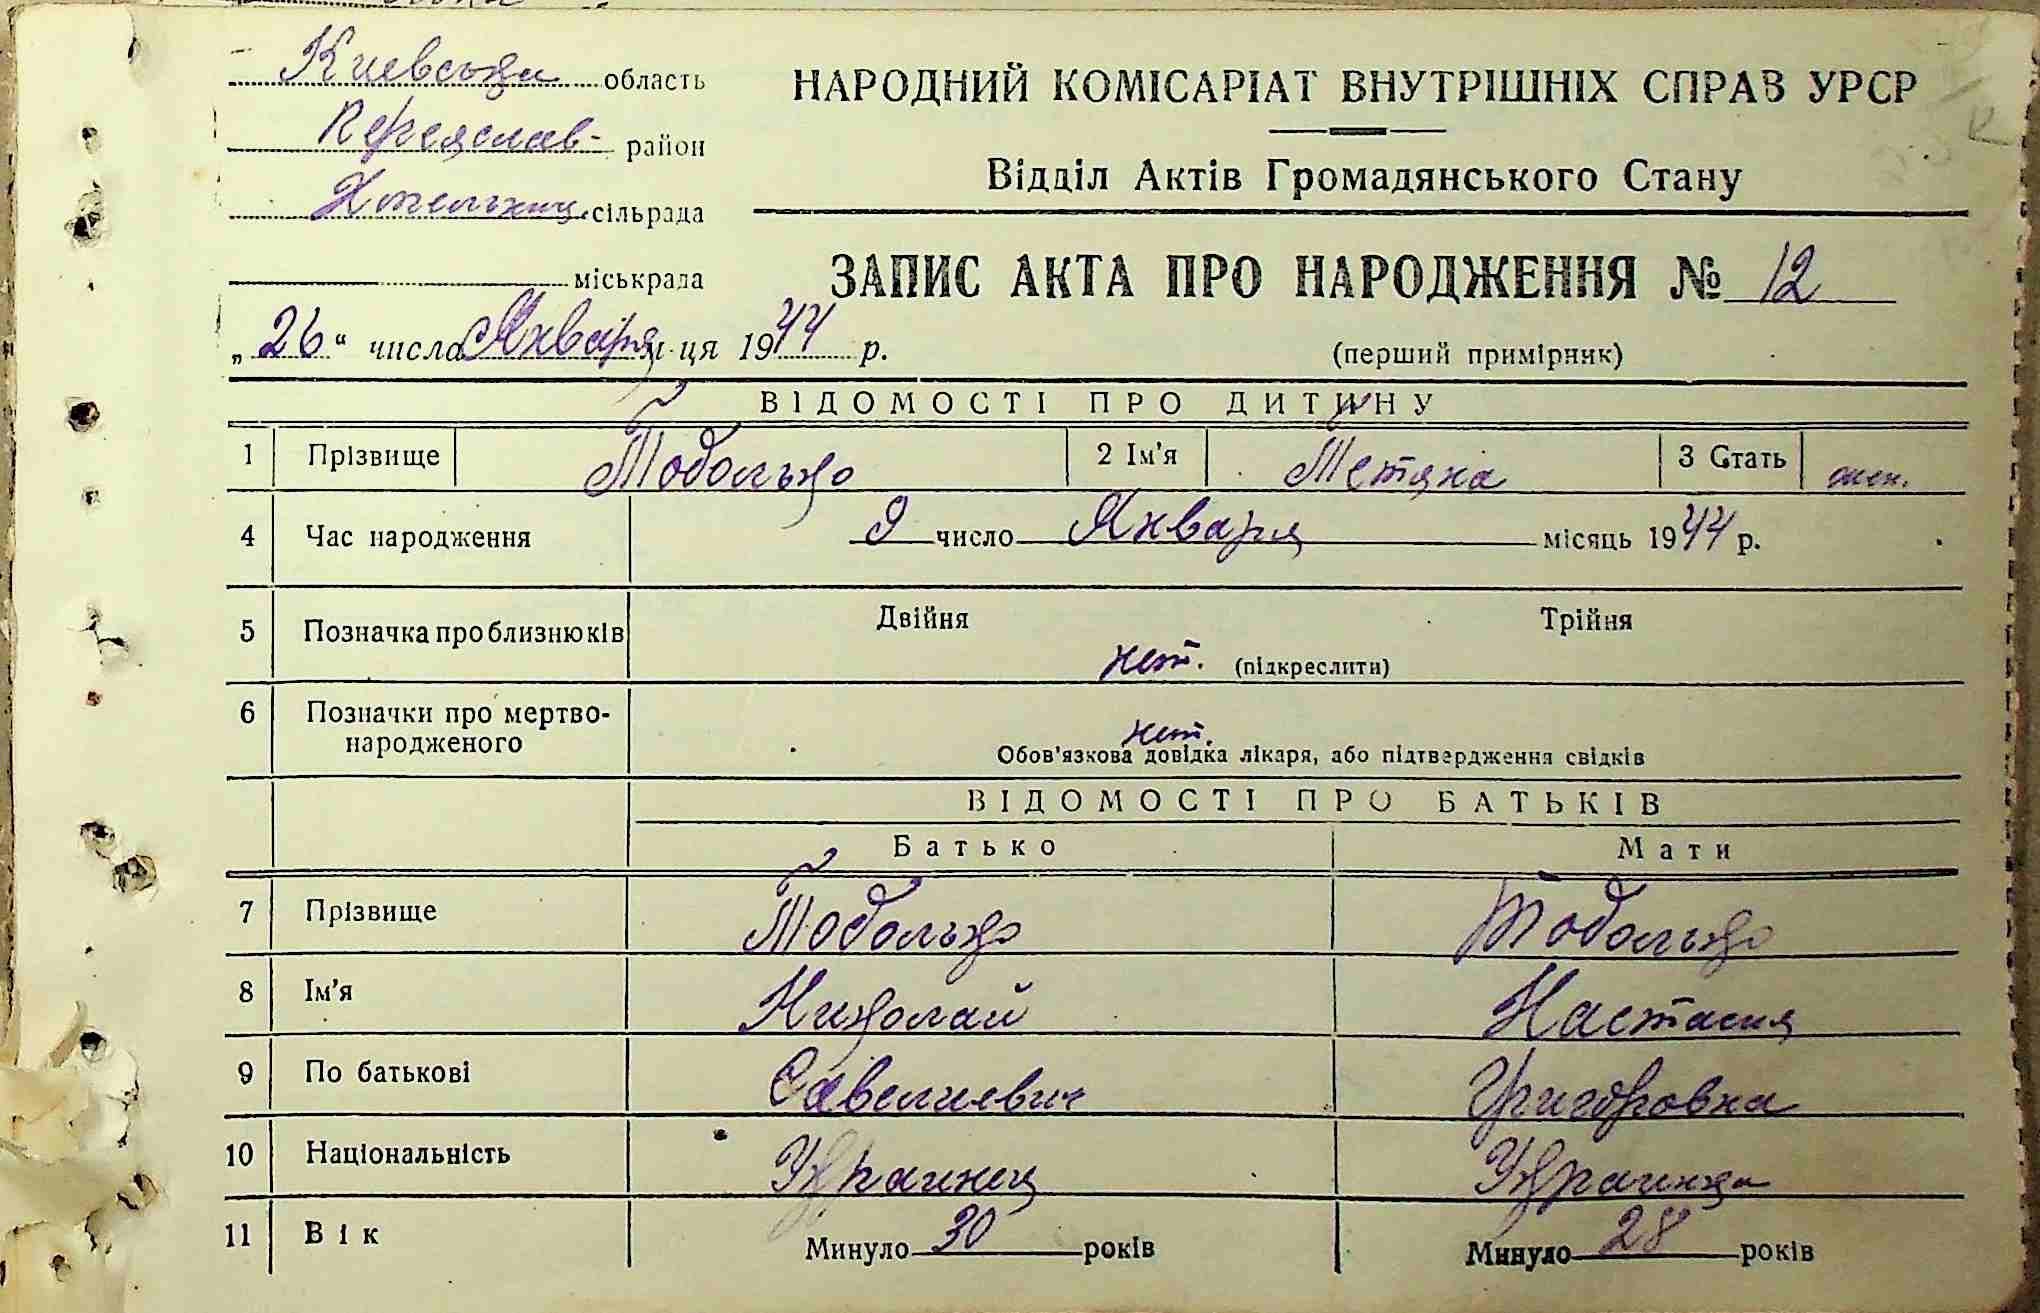 Киевська область
Переяслав- район
Хоцьк сільрада
міськрада
„26“ числа Января м-ця 1944 р.
НАРОДНИЙ КОМІСАРІАТ ВНУТРІШНІХ СПРАВ УРСР
Відділ Актів Громадянського Стану
ЗАПИС АКТА ПРО НАРОДЖЕННЯ № 12
(перший примірник)
ВІДОМОСТІ ПРО ДИТИНУ
1 Прізвище Тоболько 2 Ім'я Тетяна 3 Стать жен.
4 Час народження 9 число Января місяць 1944 р.
5 Позначка про близнюків Двійня Трійня
нет. (підкреслити)
6 Позначки про мертво-
народженого нет.
Обов'язкова довідка лікаря, або підтвердження свідків
ВІДОМОСТІ ПРО БАТЬКІВ
Батько Мати
7 Прізвище Тоболько Тоболько
8 Ім'я Николай Настасия
9 По батькові Савелиевич Григоровна
10 Національність Украинец Украинка
11 Вік Минуло 30 років Минуло 28 років